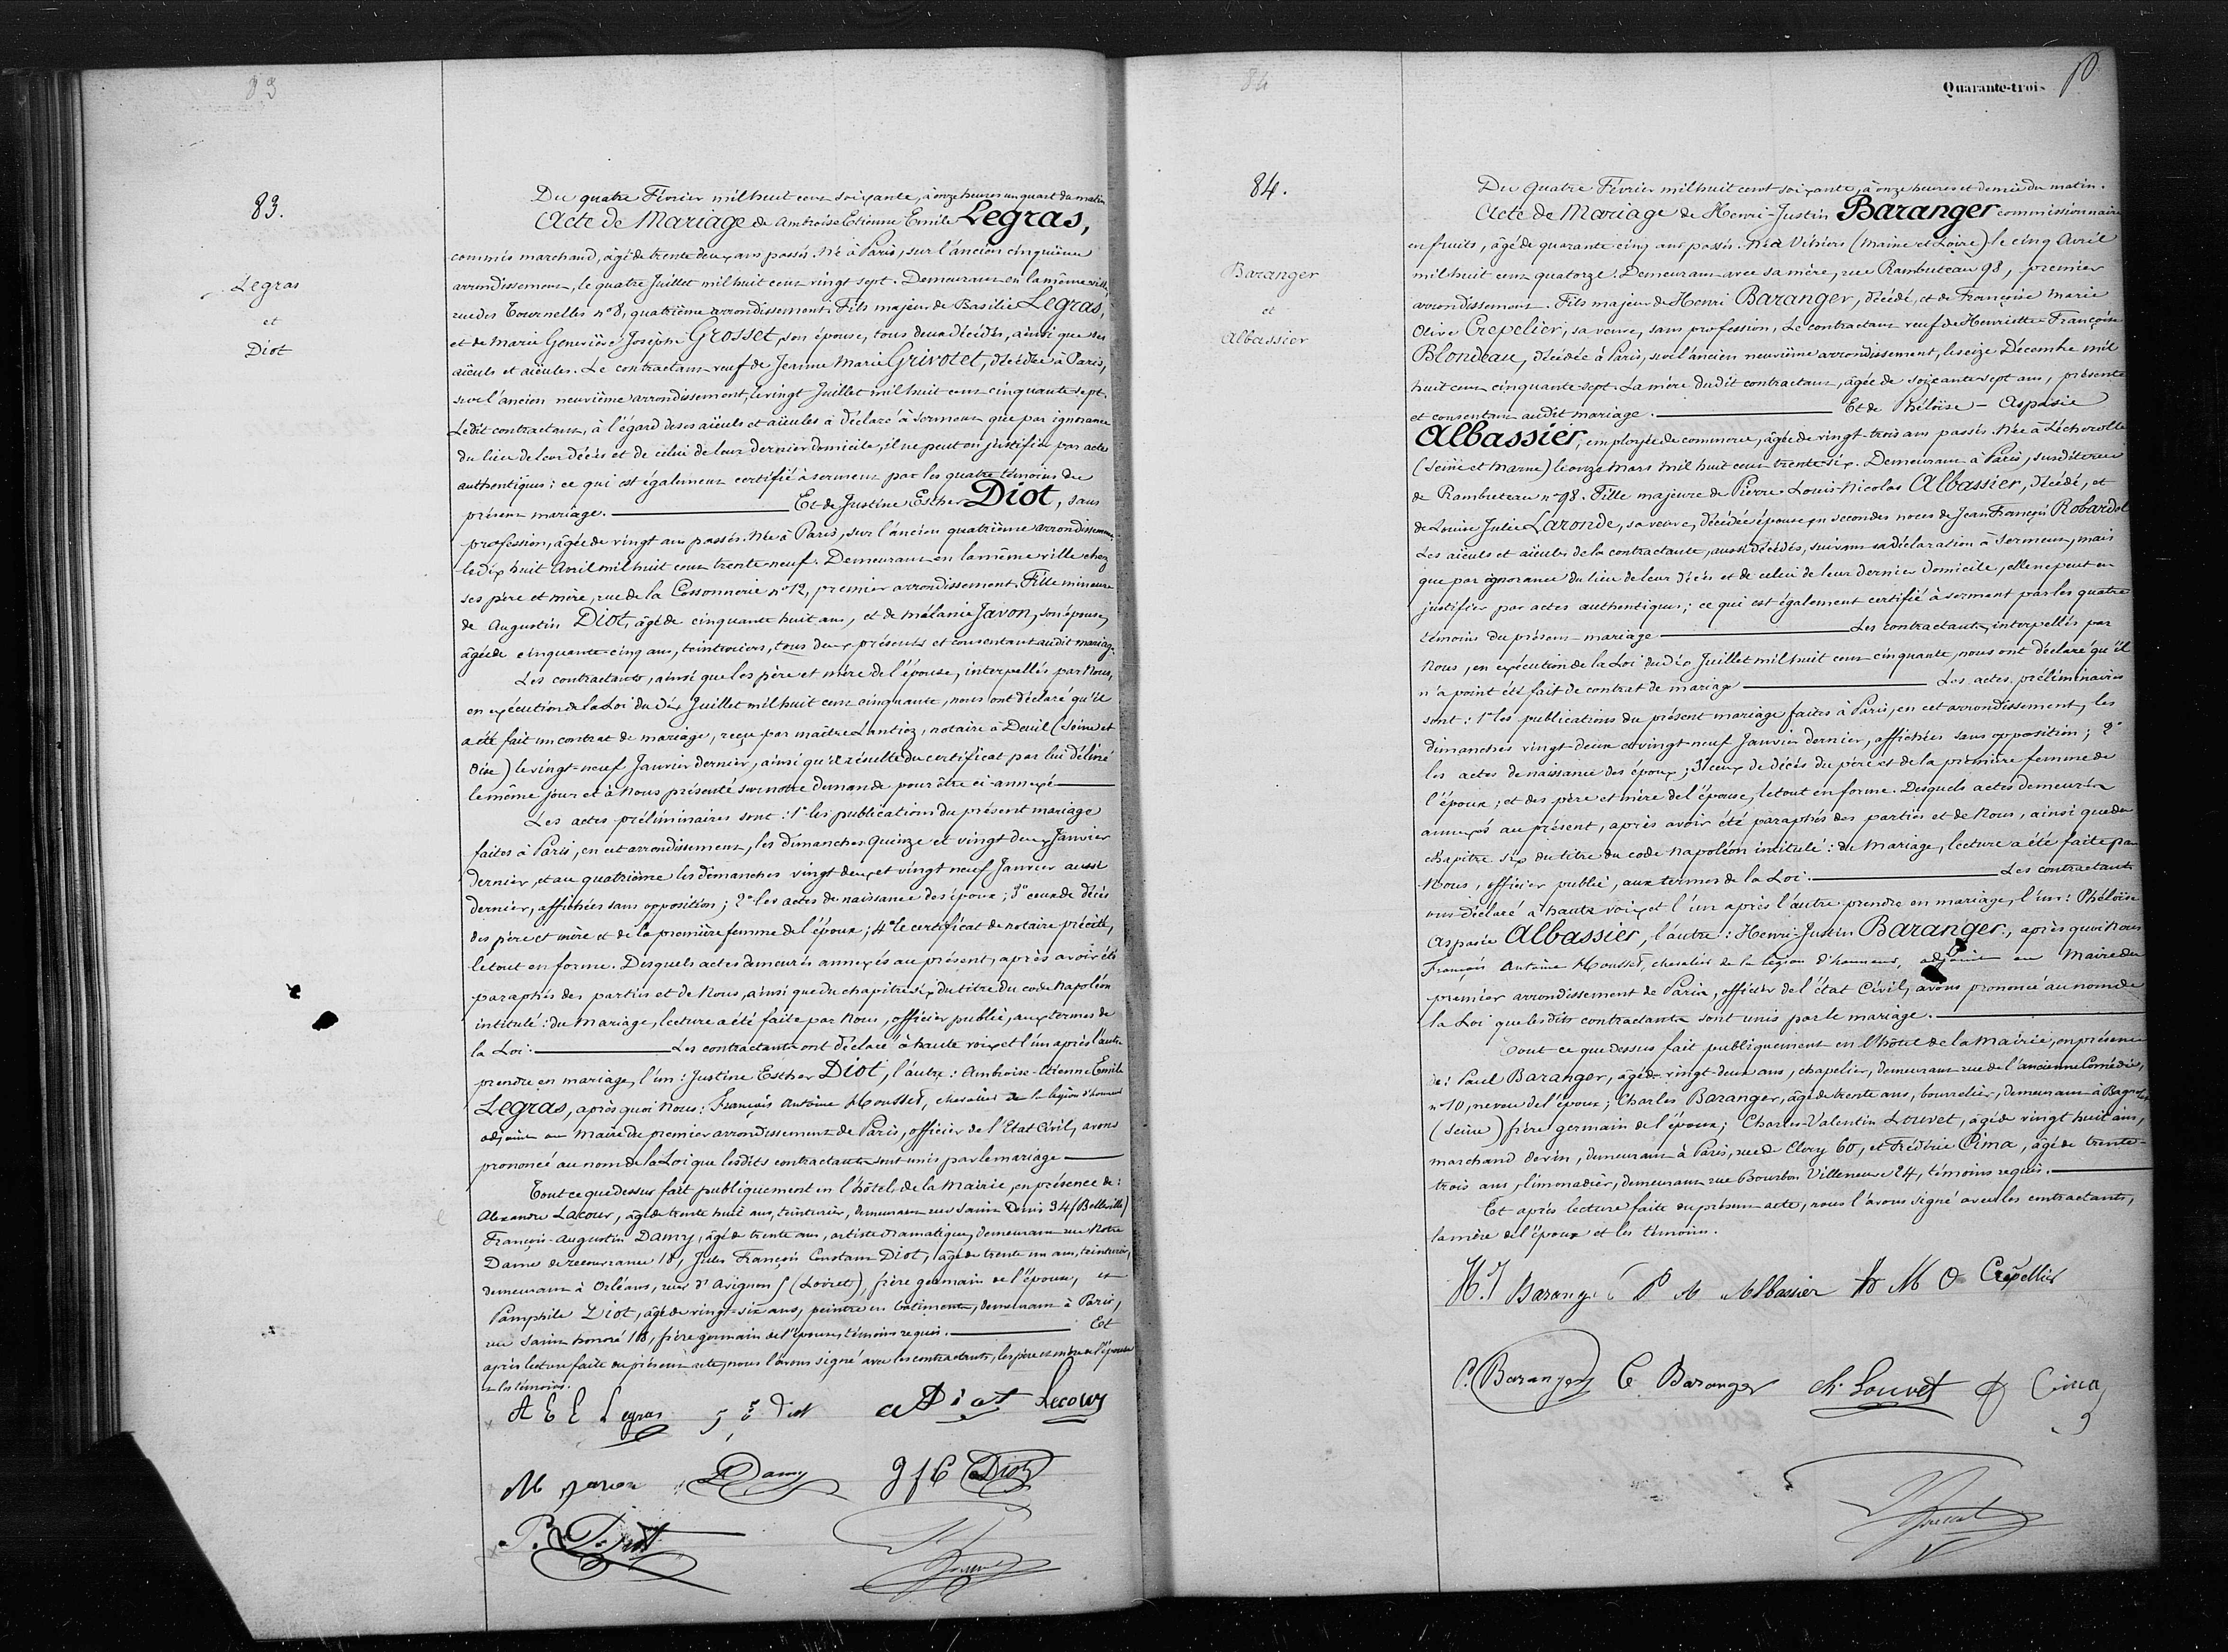 83
83.
Legras
et
Diot
Du quatre Février mil huit cent soixante, à onze heures un quart du matin
Acte de Mariage de Ambroise Etienne Emile Legras,
commis marchand, âgé de trente deux ans passés. Né à Paris, sur l'ancien cinquième
arrondissement, le quatre Juillet mil huit cent vingt sept. Demeurant en la même ville
rue des Tournelles n° 8, quatrième arrondissement. Fils majeur de Basilie Legras,
et de Marie Geneviève Josèphe Grosset, son épouse, tous deux décédés, ainsi que ses
aïeuls et aïeules. Le contractant veuf de Jeanne Marie Grivotet, décédée à Paris,
sur l'ancien neuvième arrondissement, le vingt Juillet mil huit cent cinquante sept.
Ledit contractant, à l'égard de ses aïeuls et aïeules a déclaré à serment que par ignorance
du lieu de leur décès et de celui de leur dernier domicile, il ne peut en justifier par actes
authentiques: ce qui est également certifié à serment par les quatre témoins du
présent mariage. — Et de Justine Esther Diot, sans
profession, âgée de vingt ans passés. Née à Paris, sur l'ancien quatrième arrondissement,
le dix huit Avril mil huit cent trente neuf. Demeurant en la même ville chez
ses père et mère, rue de la Cossonnerie n° 12, premier arrondissement. Fille mineure
de Augustin Diot, âgé de cinquante huit ans, et de Mélanie Javon, son épouse,
âgée de cinquante cinq ans, teinturiers, tous deux présents et consentant audit mariage.
Les contractants, ainsi que les père et mère de l'épouse, interpellés par Nous,
en exécution de la Loi du dix Juillet mil huit cent cinquante, nous ont déclaré qu'il
a été fait un contrat de mariage, reçu par maître Lantiez, notaire à Deuil (Seine et
Oise) le vingt-neuf Janvier dernier, ainsi qu'il résulte du certificat par lui délivré
le même jour et à Nous présenté sur notre demande pour être ci-annexé —
Les actes préliminaires sont: 1° les publications du présent mariage
faites à Paris, en cet arrondissement, les dimanches Quinze et vingt deux Janvier
dernier, et au quatrième les dimanches vingt deux et vingt neuf Janvier aussi
dernier, affichées sans opposition; 2° les actes de naissance des époux; 3° ceux de décès
des père et mère et de la première femme de l'époux; 4° le certificat de notaire précité,
le tout en forme. Desquels actes demeurés annexés au présent, après avoir été
paraphés des parties et de Nous, ainsi que du chapitre six du titre du code Napoléon
intitulé: du Mariage, lecture a été faite par Nous, officier public, aux termes de
la Loi: — Les contractants ont déclaré à haute voix et l'un après l'autre
prendre en mariage, l'un: Justine Esther Diot, l'autre: Ambroise-Etienne Emile
Legras, après quoi Nous: François Antoine Housset, chevalier de la légion d'honneur
adjoint au Maire du premier arrondissement de Paris, officier de l'Etat Civil, avons
prononcé au nom de la Loi que lesdits contractants sont unis par le mariage —
Tout ce que dessus fait publiquement en l'hôtel de la Mairie, en présence de:
Alexandre Lacour, âgé de trente huit ans, teinturier, demeurant rue Saint Denis 34 (Belleville)
François-Augustin Damy, âgé de trente ans, artiste dramatique, demeurant rue Notre
Dame de recouvrance 18, Jules François Constant Diot, âgé de trente un ans, teinturier,
demeurant à Orléans, rue d'Avignon 5 (Loiret), frère germain de l'épouse, et
Pamphile Diot, âgé de vingt-six ans, peintre en bâtiments, demeurant à Paris,
rue Saint honoré 18, frère germain de l'épouse, témoins requis. — Et
après lecture faite du présent acte, nous l'avons signé avec les contractants, les père et mère de l'épouse
et les témoins.
A E E Legras J E Diot A Diot Lecour
M Javon Damy J f C Diot
P. Diot
84
Quarante-trois
84.
Baranger
et
Albassier
Du quatre Février mil huit cent soixante, à onze heures et demie du matin.
Acte de Mariage de Henri-Justin Baranger commissionnaire
en fruits, âgé de quarante cinq ans passés. Né à Vihiers (Maine et Loire) le cinq Avril
mil huit cent quatorze. Demeurant avec sa mère, rue Rambuteau 98, premier
arrondissement. Fils majeur de Henri Baranger, décédé, et de Françoise Marie
Olive Crepelier, sa veuve, sans profession, Le contractant veuf de Henriette-Françoise
Blondeau, décédée à Paris, sur l'ancien neuvième arrondissement, le seize Décembre mil
huit cent cinquante sept. La mère dudit contractant, âgée de soixante sept ans, présente
et consentant audit mariage. — Et de Phéloïse-Aspasie
Albassier, employée de commerce, âgée de vingt-trois ans passés. Née à Lécherolle
(Seine et Marne) le onze Mars mil huit cent trente six. Demeurant à Paris, susdite rue
de Rambuteau n° 98. Fille majeure de Pierre Louis-Nicolas Albassier, décédé, et
de Louise Julie Laronde, sa veuve, décédée épouse en secondes noces de Jean François Robardel
Les aïeuls et aïeules de la contractante, aussi décédés, suivant sa déclaration à serment, mais
que par ignorance du lieu de leur décès et de celui de leur dernier domicile, elle ne peut en
justifier par actes authentiques; ce qui est également certifié à serment par les quatre
témoins du présent mariage — Les contractants, interpellés par
Nous, en exécution de la Loi du dix Juillet mil huit cent cinquante, nous ont déclaré qu'il
n'a point été fait de contrat de mariage — Les actes préliminaires
sont: 1° les publications du présent mariage faites à Paris, en cet arrondissement, les
dimanches vingt deux et vingt neuf Janvier dernier, affichées sans opposition; 2°
les actes de naissance des époux; 3° ceux de décès du père et de la première femme de
l'époux; et des père et mère de l'épouse, le tout en forme. Desquels actes demeurés
annexés au présent, après avoir été paraphés des parties et de Nous, ainsi que du
chapitre six du titre du code Napoléon intitulé: du Mariage, lecture a été faite par
Nous, officier public, aux termes de la Loi. — Les contractants
ont déclaré à haute voix et l'un après l'autre prendre en mariage, l'un: Phéloïse
Aspasie Albassier, l'autre: Henri-Justin Baranger, après quoi Nous
François Antoine Housset, chevalier de la légion d'honneur, adjoint au Maire du
premier arrondissement de Paris, officier de l'état Civil, avons prononcé au nom de
la Loi que lesdits contractants sont unis par le mariage. —
Tout ce que dessus fait publiquement en l'hôtel de la Mairie, en présence
de: Paul Baranger, âgé de vingt-deux ans, chapelier, demeurant rue de l'ancienne Comédie,
n° 10, neveu de l'époux; Charles Baranger, âgé de trente ans, bourrelier, demeurant à Bagnolet
(Seine) frère germain de l'époux; Charles-Valentin Louvet, âgé de vingt huit ans,
marchand de vin, demeurant à Paris, rue de Cléry 60, et Frédéric Cima, âgé de trente-
trois ans, limonadier, demeurant rue Bourbon Villeneuve 24, témoins requis. —
Et après lecture faite du présent acte, nous l'avons signé avec les contractants,
la mère de l'époux et les témoins.
H. J Baranger P A Albassier F M O Crepellier
P. Baranger C Baranger ch. Louvet F Cima